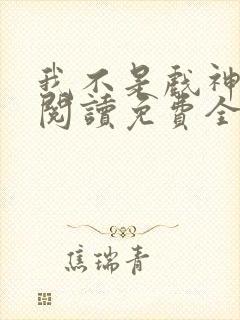 我不是戲神
閱讀免費全
焦瑞青